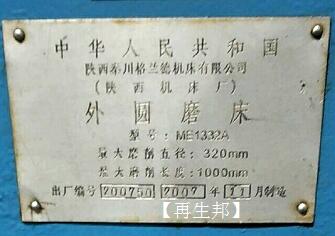 中华人民共和国
陕西秦川格兰德机床有限公司
(陕西机床厂)
外圆磨床
型号:ME1332A
最大磨削直径:320mm
最大磨削长度:1000mm
出厂编号 200750 2007 年 11 月制造
【再生邦】